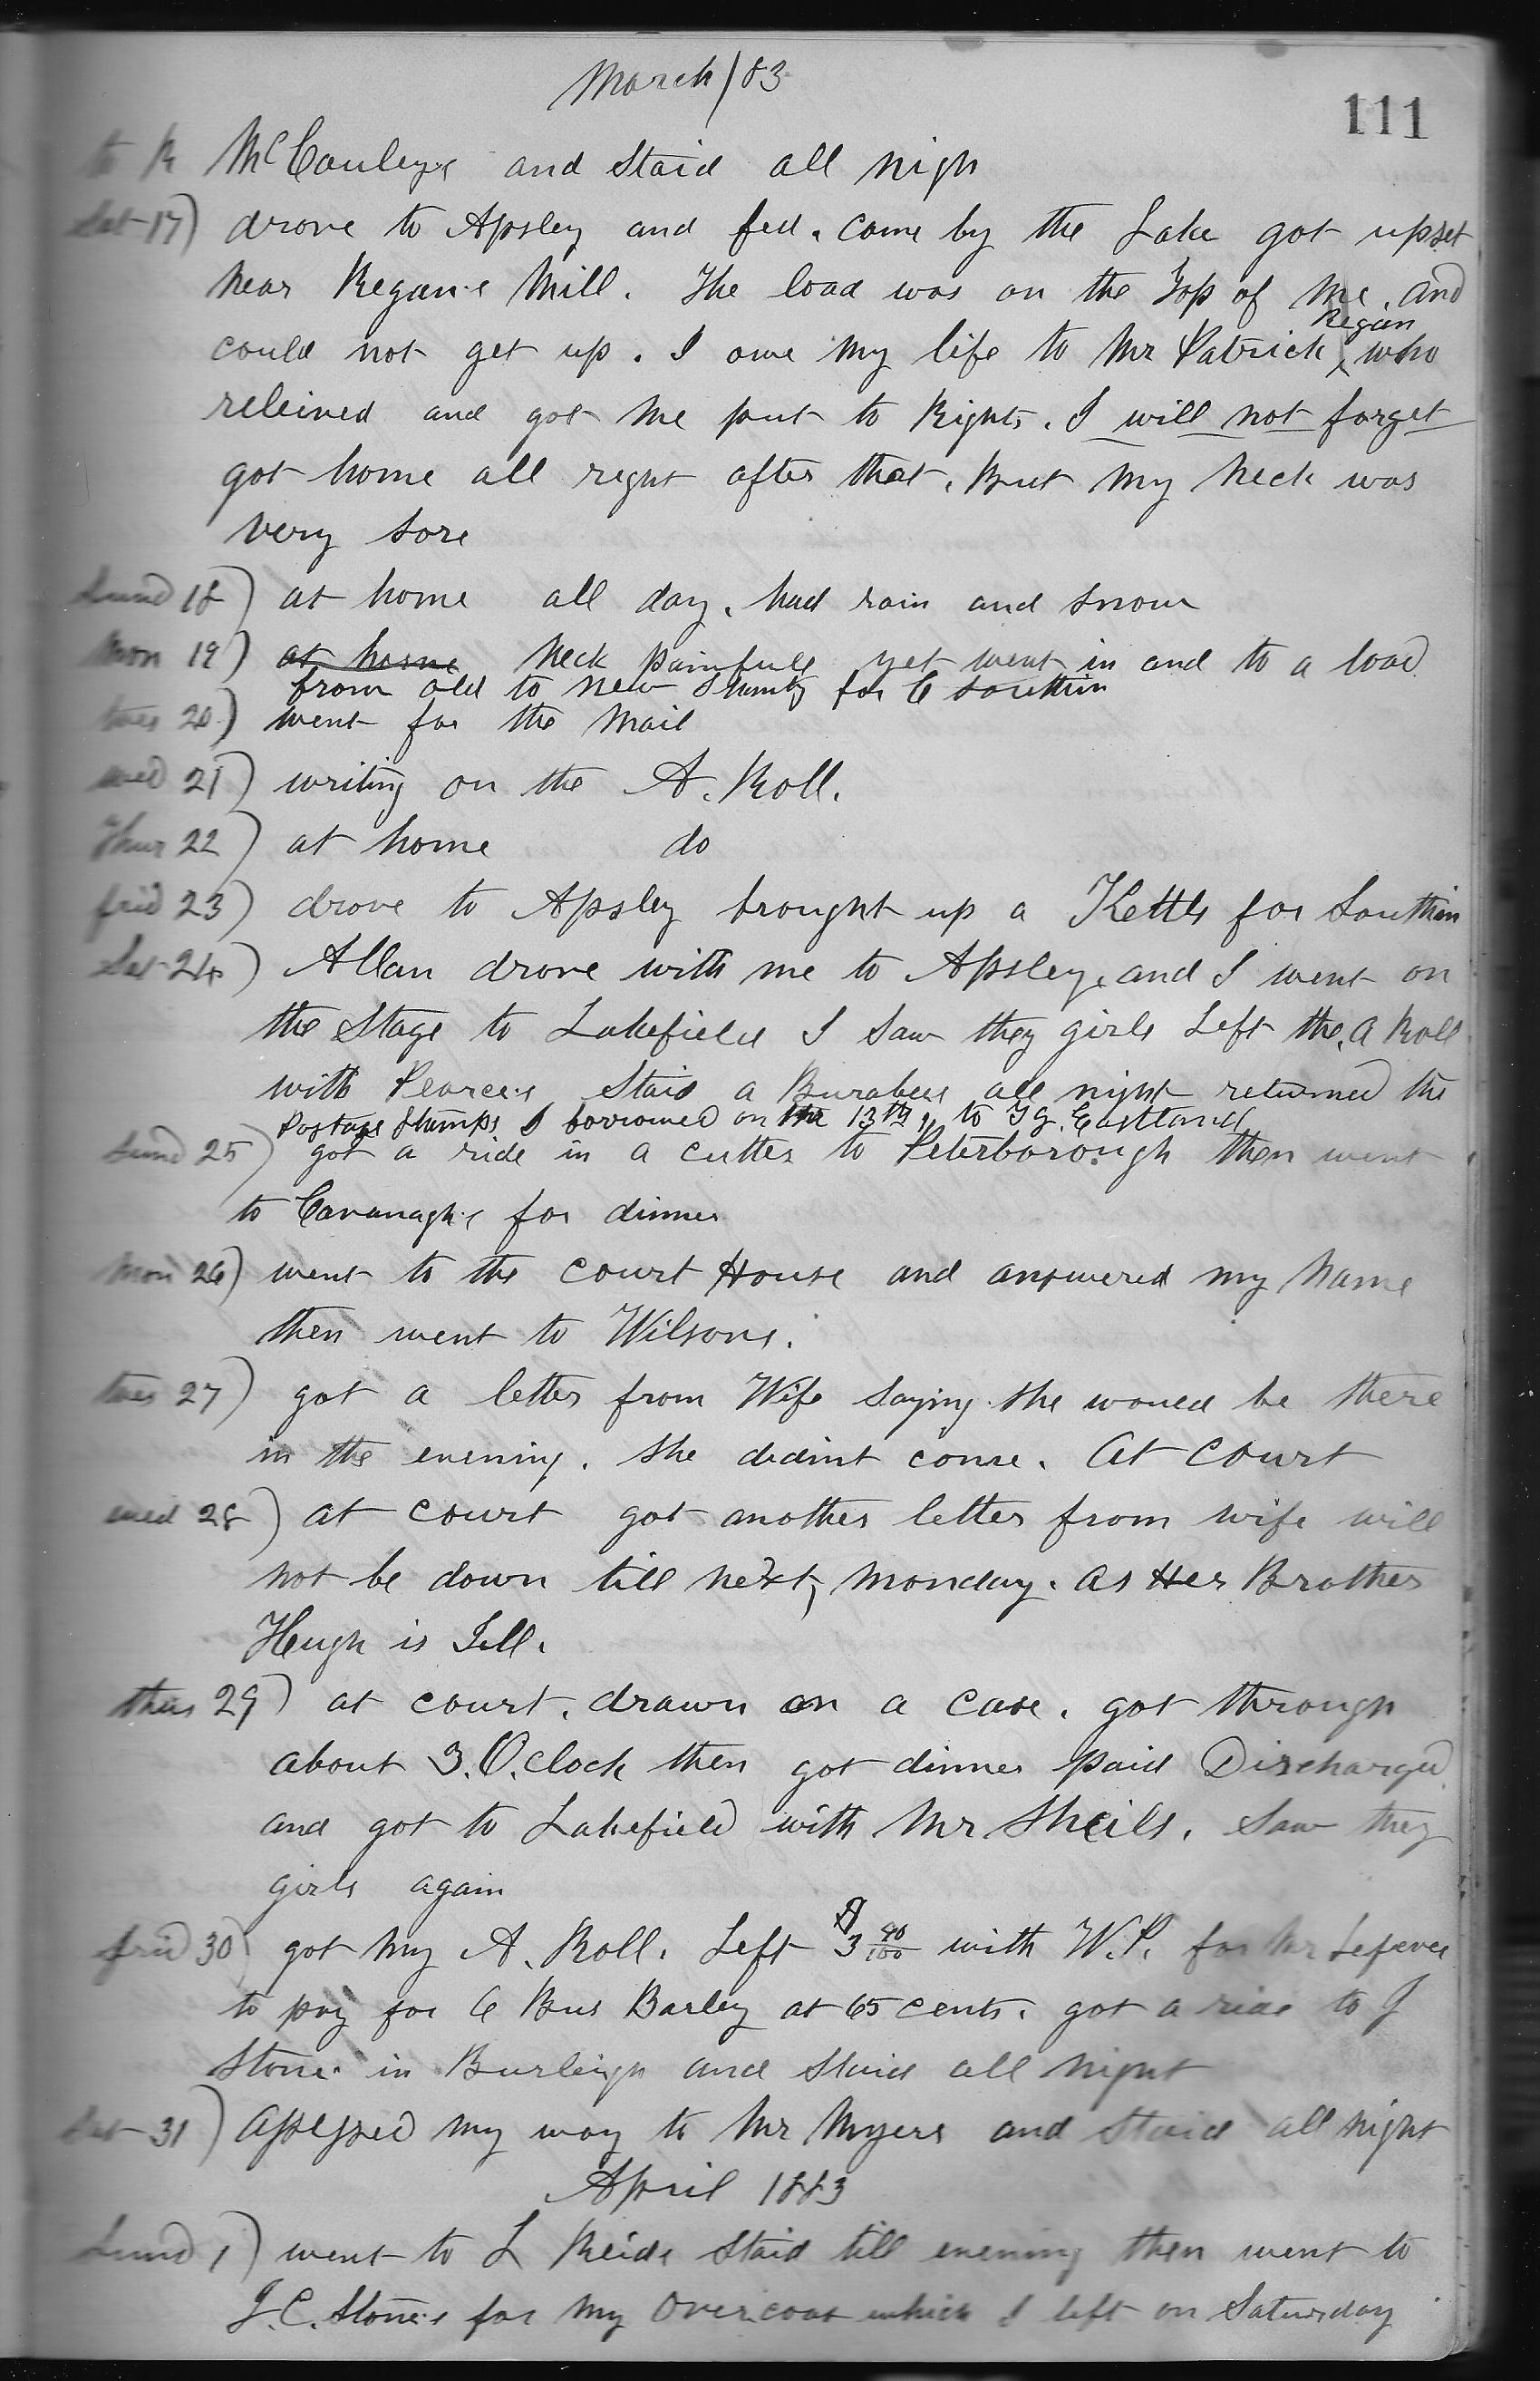 March/83
111
to R McCauleys and Staid all nigh
Sat 17) drove to Apsley and fed. Came by the Lake got upset
near Regan's Mill. The load was on the Top of me. and
could not get up. I owe my life to Mr Patrick Regan who
releived and got me put to Rights. I will not forget
got home all right after that. But my neck was
very sore
Sund 18) at home all day. had rain and snow
Mon 19) at home neck painfull yet went in and to a load
from old to new Shanty for C Southin
tues 20) went for the Mail
wed 21) writing on the A. Roll.
Thur 22) at home do
frid 23) drove to Apsley brought up a Kettle for Southin
Sat 24) Allan drove with me to Apsley. and I went on
the Stage to Lakefield I Saw they girls Left the A Roll
with Pearce's Staid a all night returned the
Postage Stamps I borrowed on the 13th, to Eastland
Sund 25) got a ride in a cutter to Peterborough then went
to Cavanagh's for dinner
Mon 26) went to the Court House and answered my Name
then went to Wilsons.
tues 27) got a letter from Wife Saying she would be there
in the evening. She didint come. At Court
wed 28) at Court got another letter from wife will
not be down till next, Monday. As Her Brother
Hugh is Ill.
thur 29) at court. drawn on a case. got through
about 3.O.Clock then got dinner paid Discharged
and got to Lakefield with Mr Sheils. Saw they
girls again
frid 30) got my A. Roll. Left $3 90/100 with W.P. for Mr Lefever
to pay for 6 Bus Barley at 65 cents. got a ride to J
Stone's in Burleigh and Staid all night
Sat 31) Assessed my way to Mr Myers and Staid all night
April 1883
Sund 1) went to L Reids Staid till evening then went to
J.C. Stone's for my Overcoat which I left on Saturday